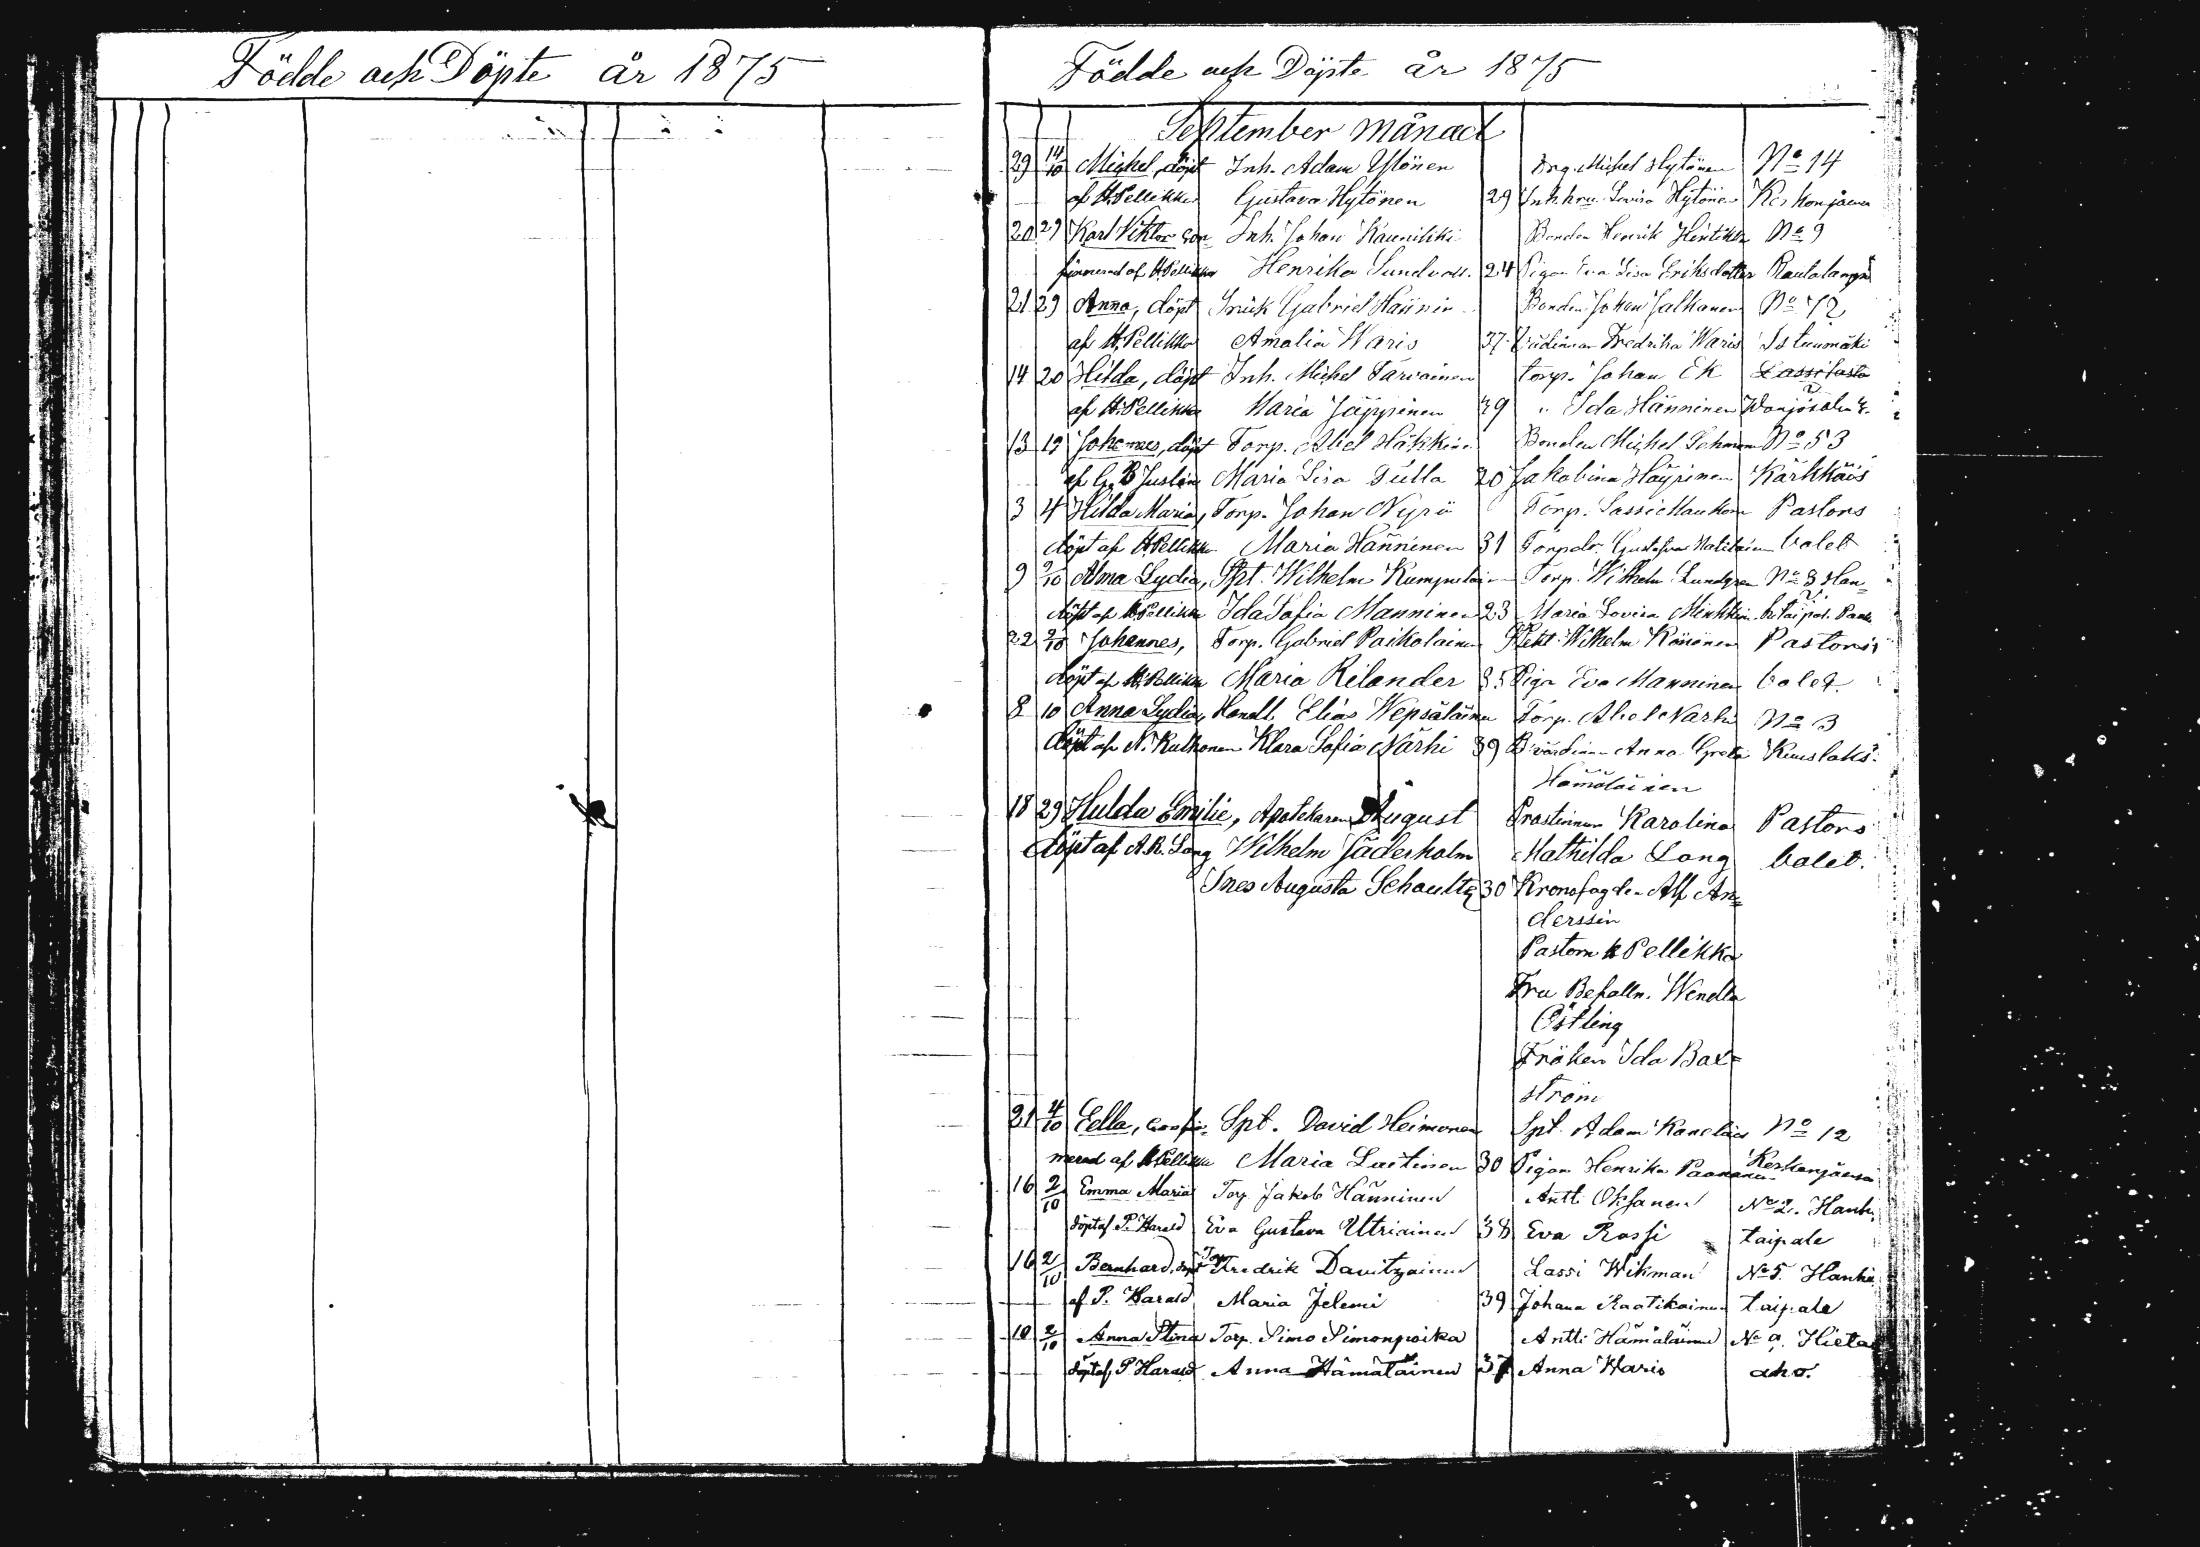 Födde och Döpte år 1875
Födde och Döpte år 1875
September månad
29 14/10 Michel, döpt Inh. Adam Ylönen Drg. Michel Hytönen No 14
af H. Pellikka Gustava Hytönen 29 Inh.hru Lovisa Hytönen Kerkonjärvi
20 29 Karl Viktor con- Inh. Johan Kauniskki Bonden Henrik Hintikka No 9
firmerad af H. Pellikka Henrika Sundvall 24 Pigan Eva Lisa Eriksdotter Rautalampi
21 29 Anna, döpt Gabriel Hännin Bonden Johan Jalkanen No 12
af H. Pellikka Amalia Waris 37 Fredrika Waris Istunmäki
14 20 Hilda, döpt Inh. Michel Tarvainen torp. Johan Ek
af H. Pellikka Maria Jäppinen 39 " Ida Hänninen
13 19 Johannes, döpt Torp. Abel Häkkin Bonden Michel No 53
af G. B Juslin Maria Lisa Tulla 20 Jakobina Häyrinen Kärkkäis
3 4 Hilda Maria, Torp. Johan Nyrö Torp. Lassi Maukon Pastors
döpt af H. Pellikka Maria Hänninen 31 Torpdr. Gustafva bolet
9 9/10 Alma Lydia, Spt. Wilhelm Kumpulain Torp. Wilhelm Lundgren No 3 Han-
döpt af H. Pellikka Ida Sofia Manninen 23 Maria Lovisa Minkkin
22 9/10 Johannes, Torp. Gabriel Paikolainen Wilhelm Könönen Pastors
döpt af H. Pellikka Maria Rilander 35 Piga Eva Manninen bolet.
8 10 Anna Lydia, Handl. Elias Wepsäläinen Torp. Abel Närhi No 3
döpt af N. Kulhonen Klara Sofia Närhi 39 B.värdinn Anna Greta Kuuslaks.
Hämäläinen
18 29 Hulda Emilie, Apotekaren August Prostinnan Karolina Pastors
döpt af A. R. Lang Wilhelm Jäderholm Mathilda Lang bolet.
Ines Augusta Schoultz 30 Kronofogden Alf An=
derssin
Pastorn H Pellikka
Fru Befalln. Wendla
Östling
Fröken Ida Bax=
ström
21 4/10 Eella, confir= Spt. David Heimonen Spt. Adam No 12
merad af H. Pellikka Maria Laitinen 30 Pigan Henrika Paananen Kerkonjärvi
16 2/10 Emma Maria Torp. Jakob Hänninen Antti Oksanen No 2. Hanki,
döpt af P. Harald Eva Gustava Utriainen 38 Eva Rossi taipale
16 2/10 Bernhard, döpt Torp. Fredrik Davitzainen Lassi Wikman No 5. Hanki
af P. Harald Maria Jelemi 39 Johana Raatikainen taipale
10 2/10 Anna Stina Torp. Simo Simonpoika Antti Hämäläinen No 9. Hieta
döpt af P. Harald Anna Hämäläinen 37 Anna Waris aho.